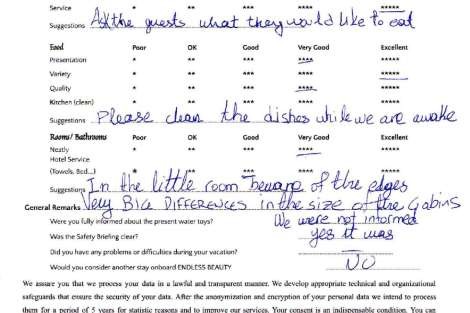 Service * ** *** **** *****
Suggestions Ask the guests what they would like to eat
Food Poor OK Good Very Good Excellent
Presentation * ** *** **** *****
Variety * ** *** **** *****
Quality * ** *** **** *****
Kitchen (clean) * ** *** **** *****
Suggestions Please clean the dishes while we are awake
Rooms/ Bathrooms Poor OK Good Very Good Excellent
Neatly * ** *** **** *****
Hotel Service
(Towels, Bed...) * ** *** **** *****
Suggestions In the little room beware of the edges
General Remarks Very BIG DIFFERENCES in the size of the Cabins
Were you fully informed about the present water toys? We were not informed
Was the Safety Briefing clear? yes it was
Did you have any problems or difficulties during your vacation?
Would you consider another stay onboard ENDLESS BEAUTY NO
We assure you that we process your data in a lawful and transparent manner. We develop appropriate technical and organizational
safeguards that ensure the security of your data. After the anonymization and encryption of your personal data we intend to process
them for a period of 5 years for statistic reasons and to improve our services. Your consent is an indispensable condition. You can